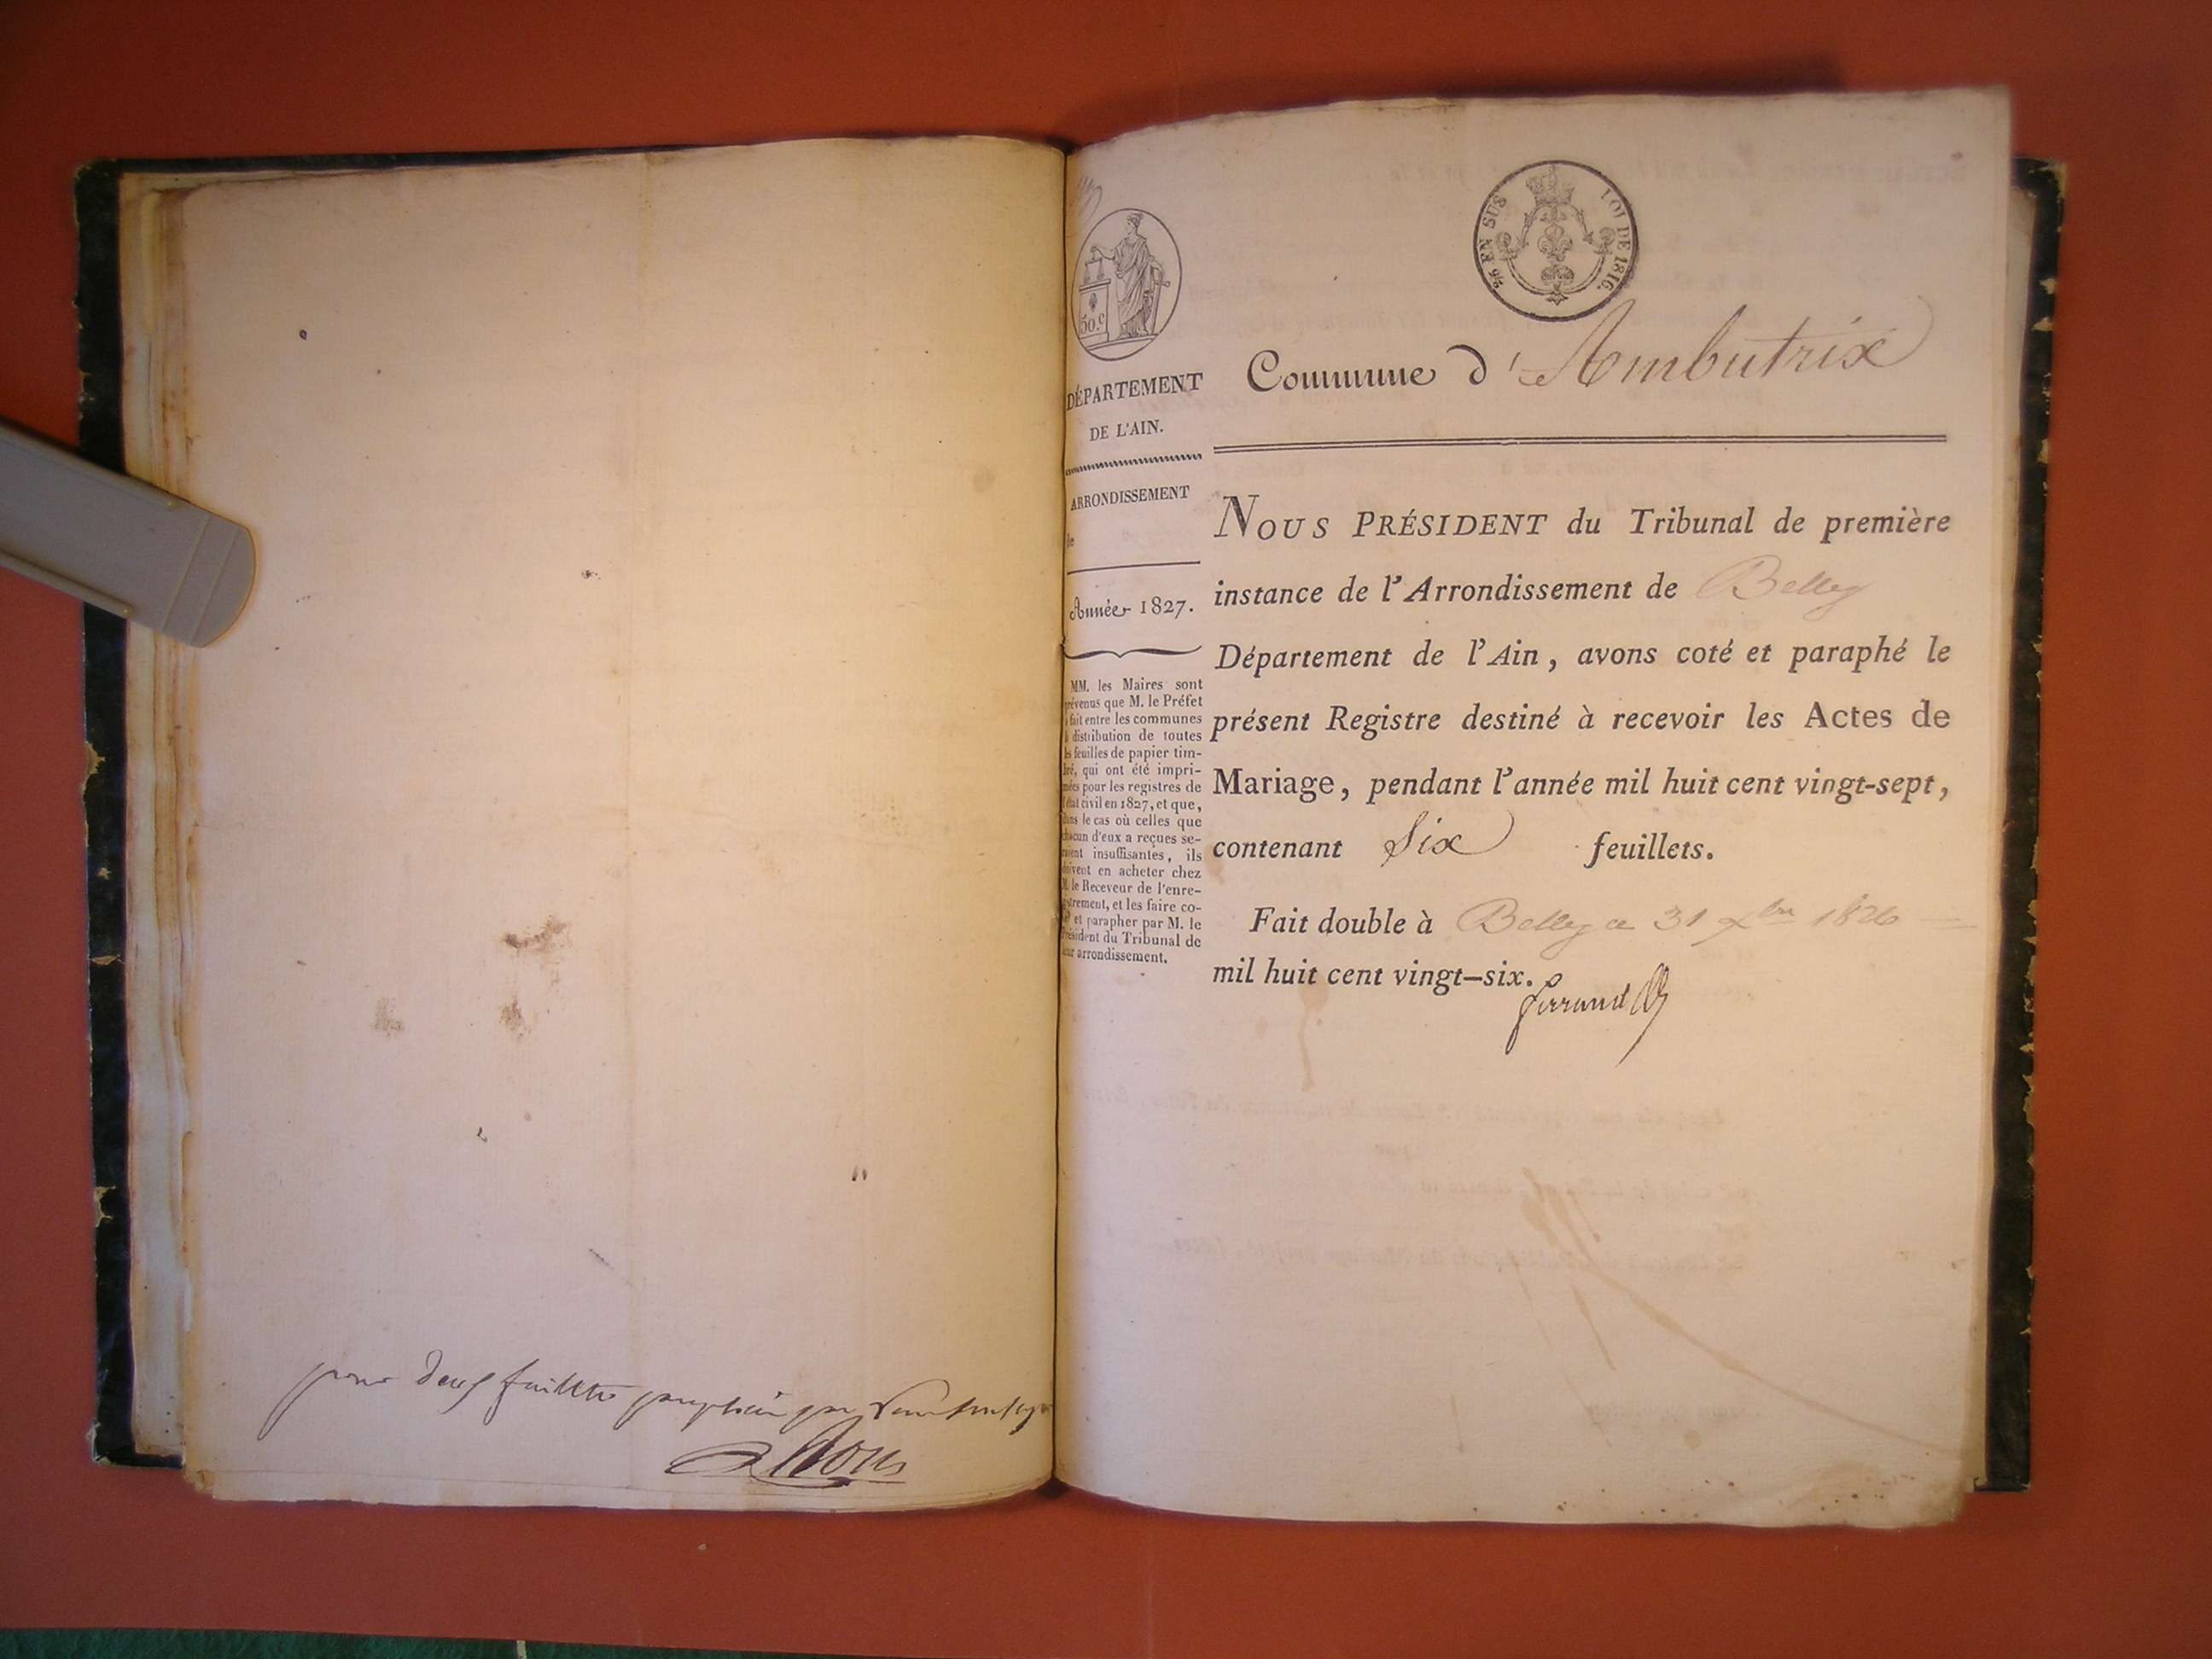 pour deux feuillets
50.c
EN SUS
LOI DE 1816.
DÉPARTEMENT
DE L'AIN.
ARRONDISSEMENT
de
Année 1827.
MM. les Maires sont
prévenus que M. le Préfet
a fait entre les communes
la distribution de toutes
les feuilles de papier tim-
bré, qui ont été impri-
mées pour les registres de
l'état civil en 1827, et que,
dans le cas où celles que
chacun d'eux a reçues se-
raient insuffisantes, ils
doivent en acheter chez
M. le Receveur de l'enre-
gistrement, et les faire co-
ter et parapher par M. le
Président du Tribunal de
leur arrondissement.
Commune d'Ambutrix
NOUS PRÉSIDENT du Tribunal de première
instance de l'Arrondissement de Belley
Département de l'Ain, avons coté et paraphé le
présent Registre destiné à recevoir les Actes de
Mariage, pendant l'année mil huit cent vingt-sept,
contenant Six feuillets.
Fait double à Belley ce 31 Xbre 1826
mil huit cent vingt-six.
ferrand